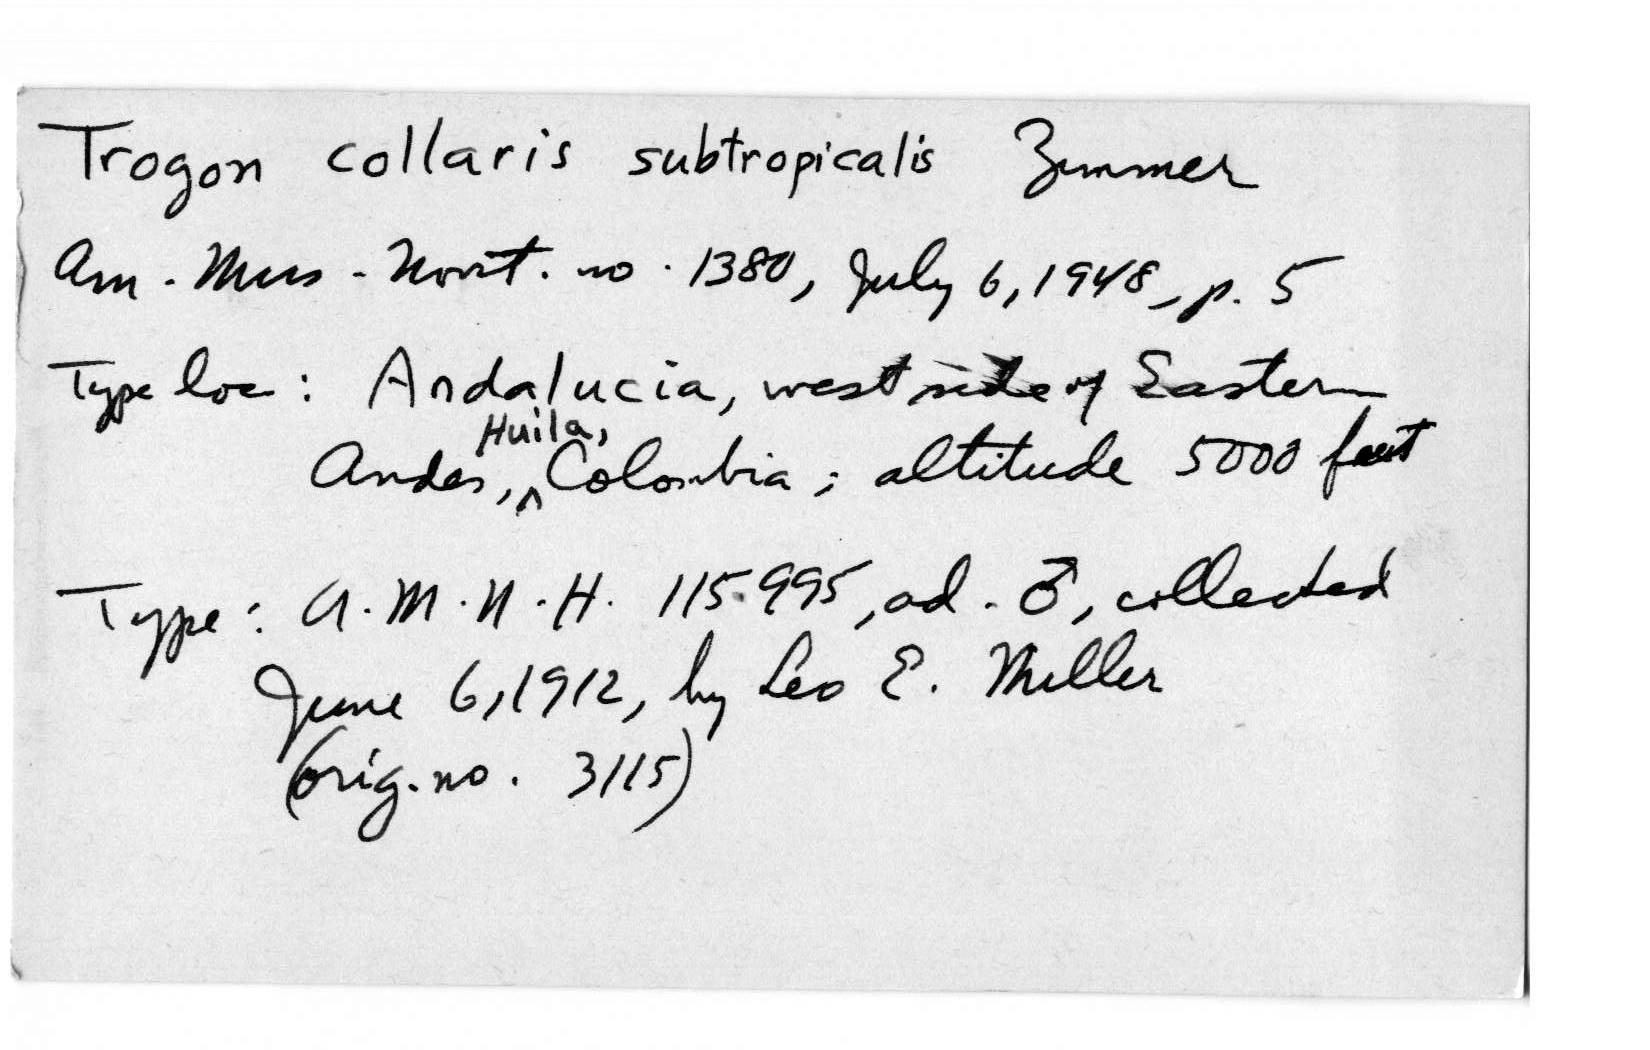 Trogon collaris subtropicalis Zimmer
Am. Mus. Novit. no. 1380, July 6, 1948, p. 5
Type loc: Andalucia, west side of Eastern
Huila,
Andes, ^ Colombia; altitude 5000 feet
Type: A.M.N.H. 115995, ad. ♂, collected
June 6, 1912, by Leo E. Miller
(orig. no. 3115)